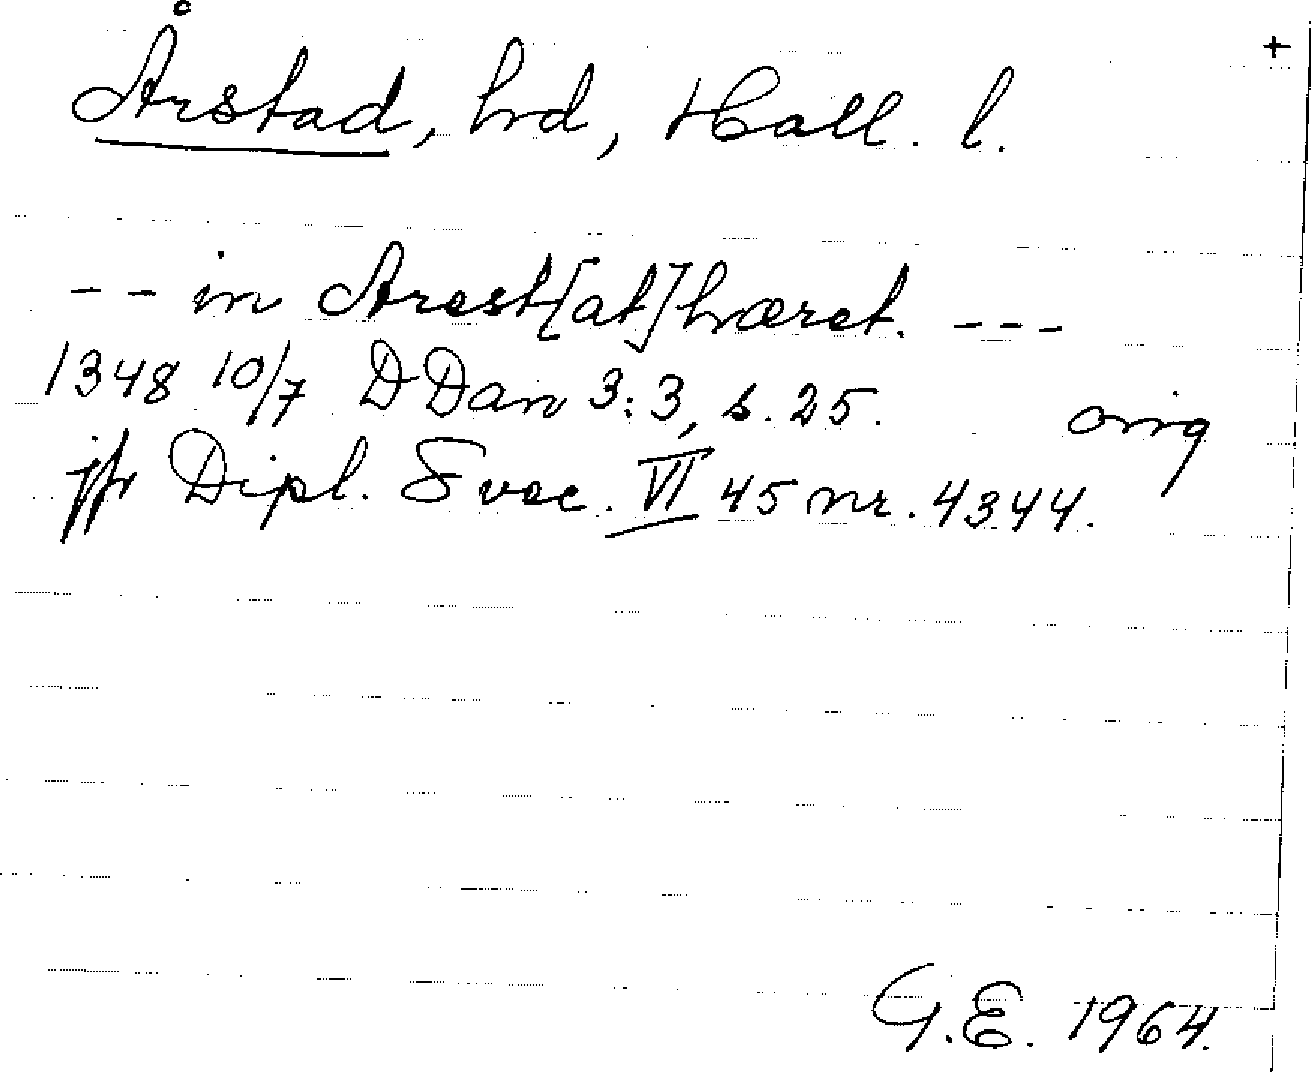 +
Årstad, hd, Hall. l.
-- in Arest[at]hæret. ---
1348 10/7 DDan 3:3, s. 25. orig
jfr Dipl. Svec. VI 45 nr. 4344.
G.E. 1964.